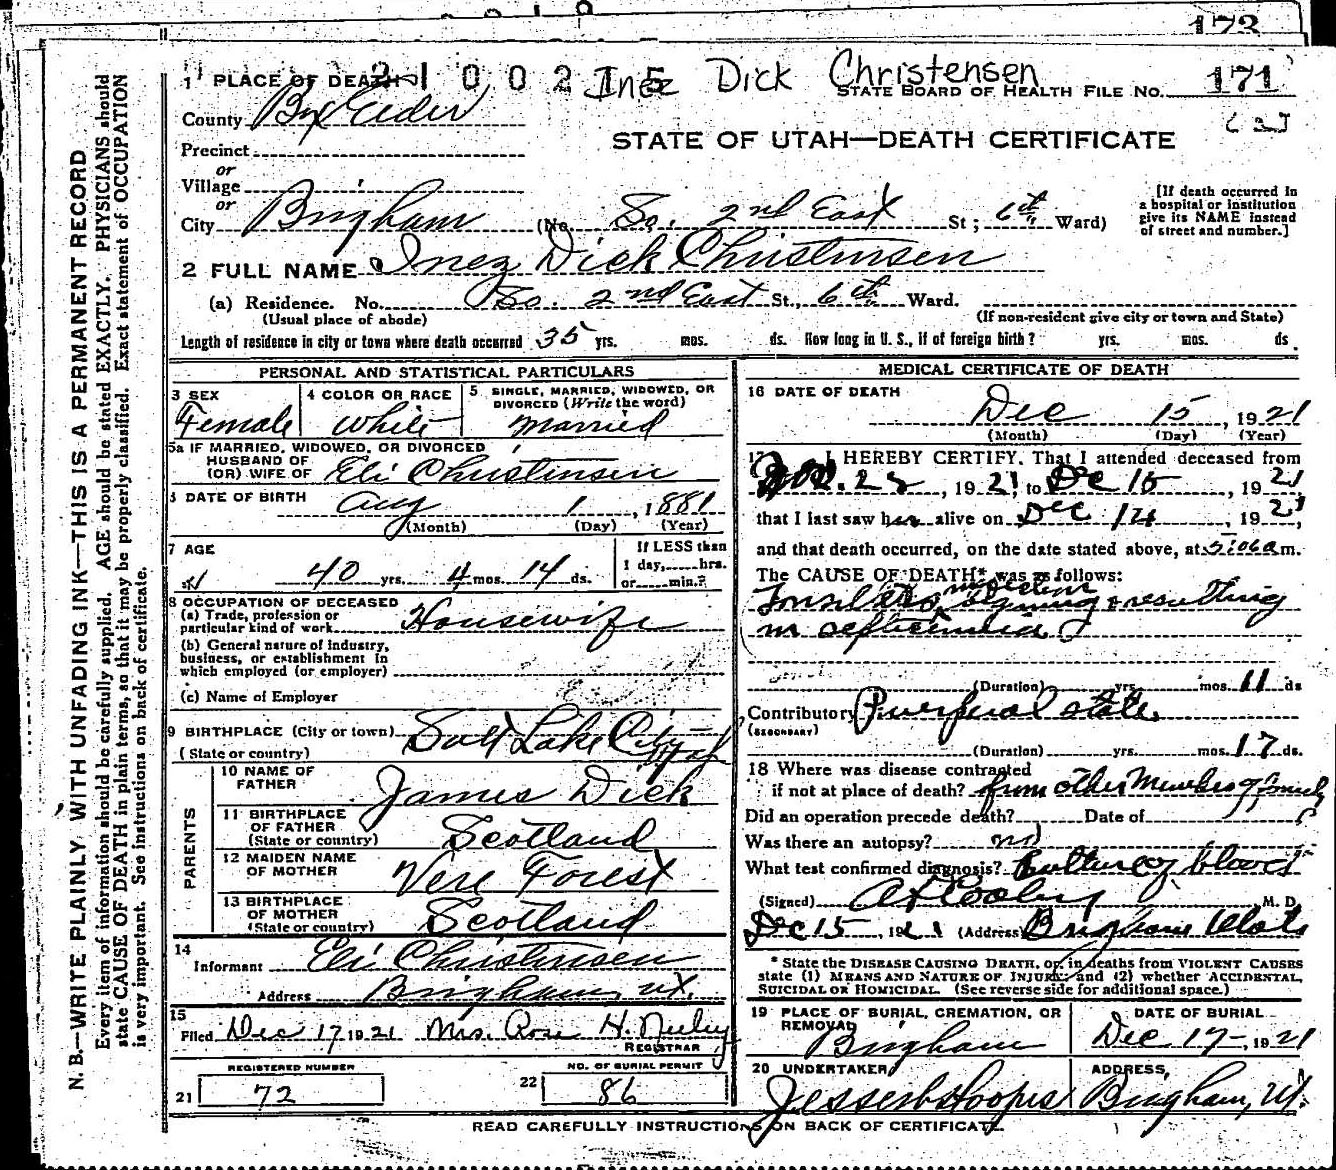 173
1 PLACE OF DEATH 2100215 Inez Dick Christensen
STATE BOARD OF HEALTH FILE NO. 171
County Box Elder
STATE OF UTAH—DEATH CERTIFICATE
Precinct
or
Village
or
City Brigham (No. So. 2nd East St; 6th Ward)
[If death occurred in
a hospital or institution
give its NAME instead
of street and number.]
2 FULL NAME Inez Dick Christensen
(a) Residence. No. So. 2nd East St., 6th Ward.
(Usual place of abode) (If non-resident give city or town and State)
Length of residence in city or town where death occurred 35 yrs. mos. ds. How long in U. S., if of foreign birth? yrs. mos. ds.
PERSONAL AND STATISTICAL PARTICULARS
3 SEX Female
4 COLOR OR RACE White
5 SINGLE, MARRIED, WIDOWED, OR
DIVORCED (Write the word)
Married
5a IF MARRIED, WIDOWED, OR DIVORCED
HUSBAND OF
(OR) WIFE OF Eli Christensen
6 DATE OF BIRTH Aug 1, 1881
(Month) (Day) (Year)
7 AGE
40 yrs. 4 mos. 14 ds.
If LESS than
1 day, hrs.
or min.?
8 OCCUPATION OF DECEASED
(a) Trade, profession or
particular kind of work Housewife
(b) General nature of industry,
business, or establishment in
which employed (or employer)
(c) Name of Employer
9 BIRTHPLACE (City or town) Salt Lake City
(State or country) Utah
PARENTS
10 NAME OF
FATHER James Dick
11 BIRTHPLACE
OF FATHER
(State or country) Scotland
12 MAIDEN NAME
OF MOTHER Vere Forest
13 BIRTHPLACE
OF MOTHER
(State or country) Scotland
14
Informant Eli Christensen
Address Brigham, Ut.
15
Filed Dec 17 1921 Mrs. Rose H.
REGISTRAR
REGISTERED NUMBER
21 72
NO. OF BURIAL PERMIT
22 86
MEDICAL CERTIFICATE OF DEATH
16 DATE OF DEATH
Dec 15, 1921
(Month) (Day) (Year)
17 I HEREBY CERTIFY, That I attended deceased from
Nov. 28, 1921, to Dec 15, 1921
that I last saw her alive on Dec 14, 1921,
and that death occurred, on the date stated above, at 5:06 a m.
The CAUSE OF DEATH* was as follows:
Tonsilitis, resulting
in septicemia
(Duration) yrs. mos. 11 ds
Contributory Puerperal state
(SECONDARY)
(Duration) yrs. mos. 17 ds.
18 Where was disease contracted
if not at place of death? from other members of family
Did an operation precede death? Date of
Was there an autopsy? no
What test confirmed diagnosis? Culture of blood
(Signed) M. D.
Dec 15, 1921 (Address) Brigham Utah
* State the DISEASE CAUSING DEATH, or, in deaths from VIOLENT CAUSES
state (1) MEANS AND NATURE OF INJURY; and (2) whether ACCIDENTAL,
SUICIDAL OR HOMICIDAL. (See reverse side for additional space.)
19 PLACE OF BURIAL, CREMATION, OR
REMOVAL
Brigham
DATE OF BURIAL
Dec 17-, 1921
20 UNDERTAKER
ADDRESS,
Brigham, Ut.
READ CAREFULLY INSTRUCTIONS ON BACK OF CERTIFICATE.
N. B.—WRITE PLAINLY, WITH UNFADING INK—THIS IS A PERMANENT RECORD
Every item of information should be carefully supplied. AGE should be stated EXACTLY. PHYSICIANS should
state CAUSE OF DEATH in plain terms, so that it may be properly classified. Exact statement of OCCUPATION
is very important. See instructions on back of certificate.